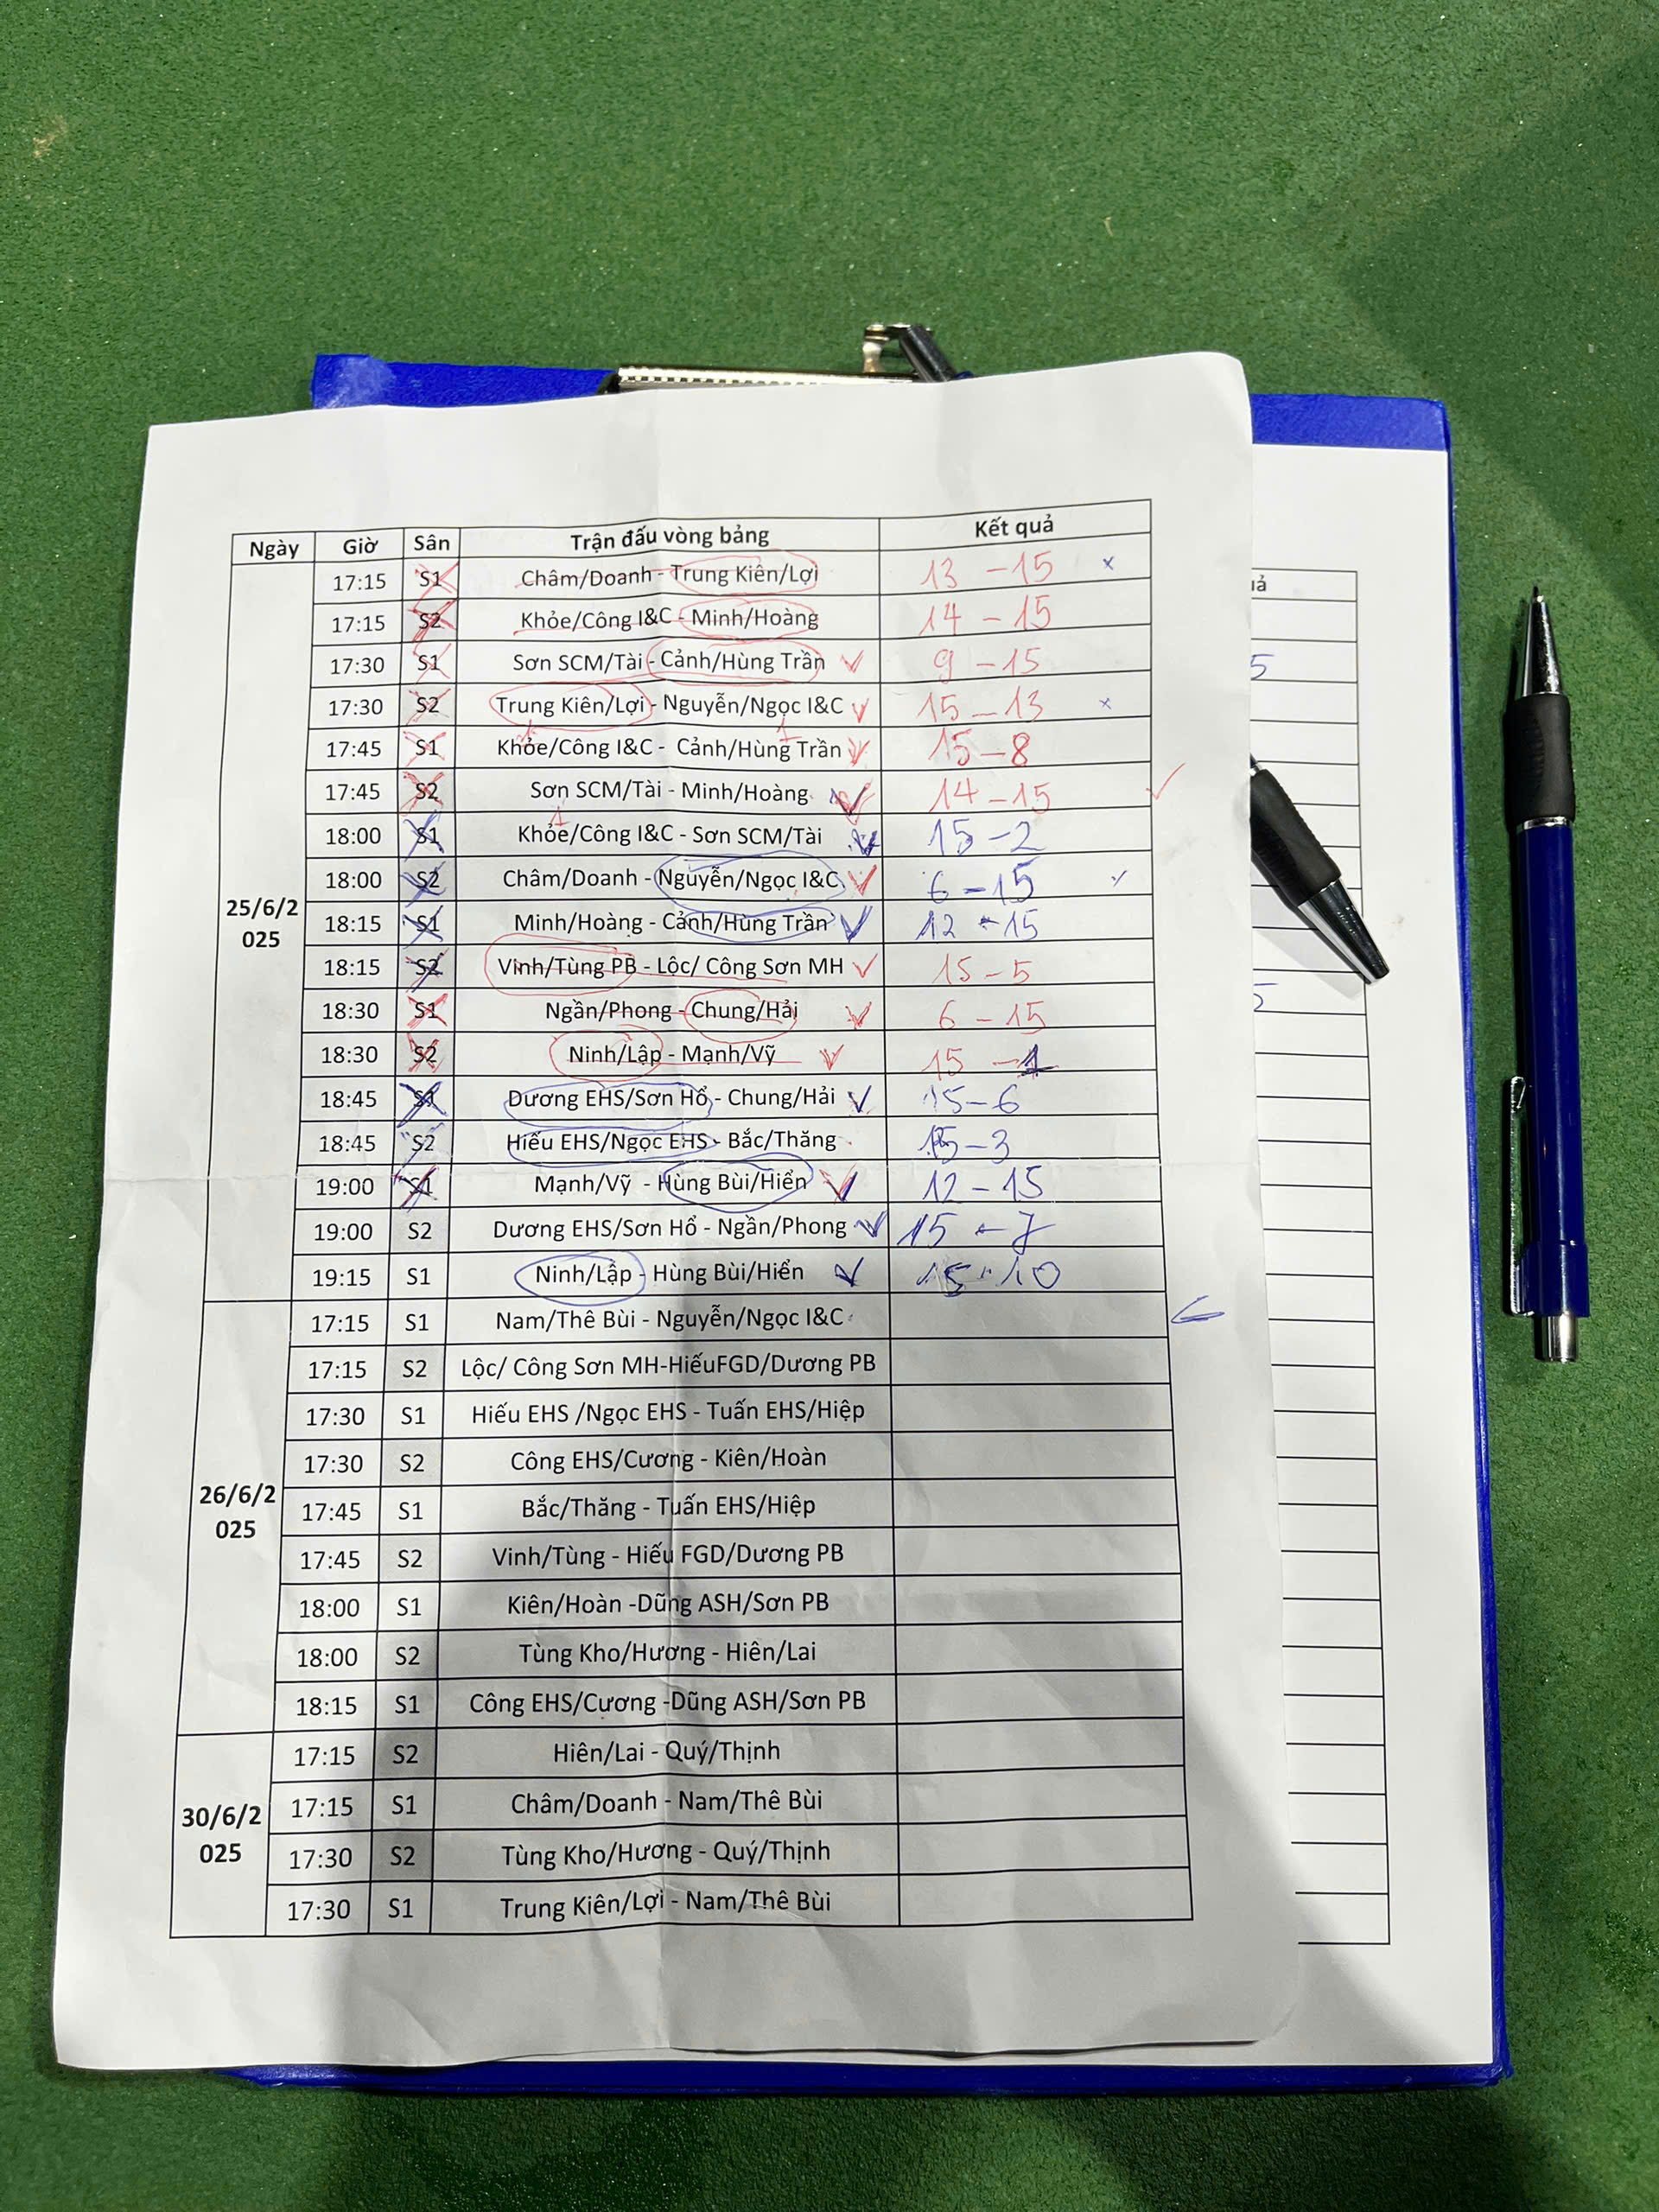 Ngày Giờ Sân Trận đấu vòng bảng Kết quả
25/6/2025
17:15 S1 Châm/Doanh - Trung Kiên/Lợi 13 - 15 x
17:15 S2 Khỏe/Công I&C - Minh/Hoàng 14 - 15
17:30 S1 Sơn SCM/Tài - Cảnh/Hùng Trần 9 - 15
17:30 S2 Trung Kiên/Lợi - Nguyễn/Ngọc I&C 15 - 13 x
17:45 S1 Khỏe/Công I&C - Cảnh/Hùng Trần 15 - 8
17:45 S2 Sơn SCM/Tài - Minh/Hoàng 14 - 15
18:00 S1 Khỏe/Công I&C - Sơn SCM/Tài 15 - 2
18:00 S2 Châm/Doanh - Nguyễn/Ngọc I&C 6 - 15
18:15 S1 Minh/Hoàng - Cảnh/Hùng Trần 12 - 15
18:15 S2 Vinh/Tùng PB - Lộc/ Công Sơn MH 15 - 5
18:30 S1 Ngần/Phong - Chung/Hải 6 - 15
18:30 S2 Ninh/Lập - Mạnh/Vỹ 15 -
18:45 S1 Dương EHS/Sơn Hổ - Chung/Hải 15 - 6
18:45 S2 Hiếu EHS/Ngọc EHS - Bắc/Thăng 15 - 3
19:00 S1 Mạnh/Vỹ - Hùng Bùi/Hiển 12 - 15
19:00 S2 Dương EHS/Sơn Hổ - Ngần/Phong 15 - 7
19:15 S1 Ninh/Lập - Hùng Bùi/Hiển 15 - 10
26/6/2025
17:15 S1 Nam/Thê Bùi - Nguyễn/Ngọc I&C
17:15 S2 Lộc/ Công Sơn MH-HiếuFGD/Dương PB
17:30 S1 Hiếu EHS /Ngọc EHS - Tuấn EHS/Hiệp
17:30 S2 Công EHS/Cương - Kiên/Hoàn
17:45 S1 Bắc/Thăng - Tuấn EHS/Hiệp
17:45 S2 Vinh/Tùng - Hiếu FGD/Dương PB
18:00 S1 Kiên/Hoàn -Dũng ASH/Sơn PB
18:00 S2 Tùng Kho/Hương - Hiên/Lai
18:15 S1 Công EHS/Cương -Dũng ASH/Sơn PB
30/6/2025
17:15 S2 Hiên/Lai - Quý/Thịnh
17:15 S1 Châm/Doanh - Nam/Thê Bùi
17:30 S2 Tùng Kho/Hương - Quý/Thịnh
17:30 S1 Trung Kiên/Lợi - Nam/Thê Bùi